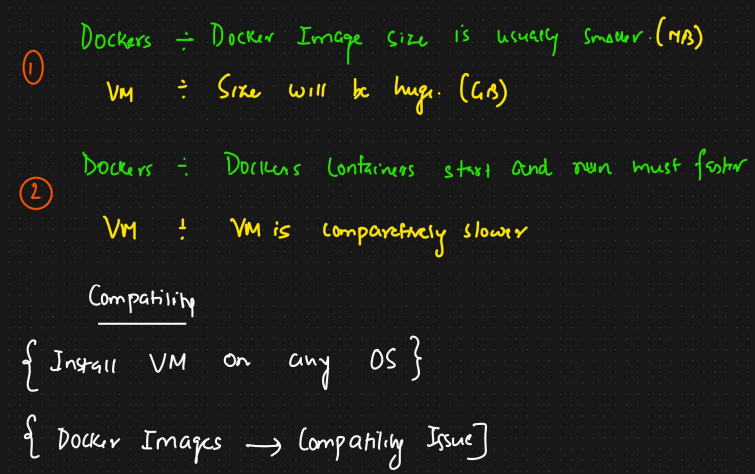 Dockers ÷ Docker Image size is usually smaller. (MB)
①
VM ÷ Size will be huge. (GB)
Dockers ÷ Dockers Containers start and run must faster
②
VM ÷ VM is comparetively slower
Compatility
{ Install VM on any OS }
{ Docker Images → Compatility Issue ]